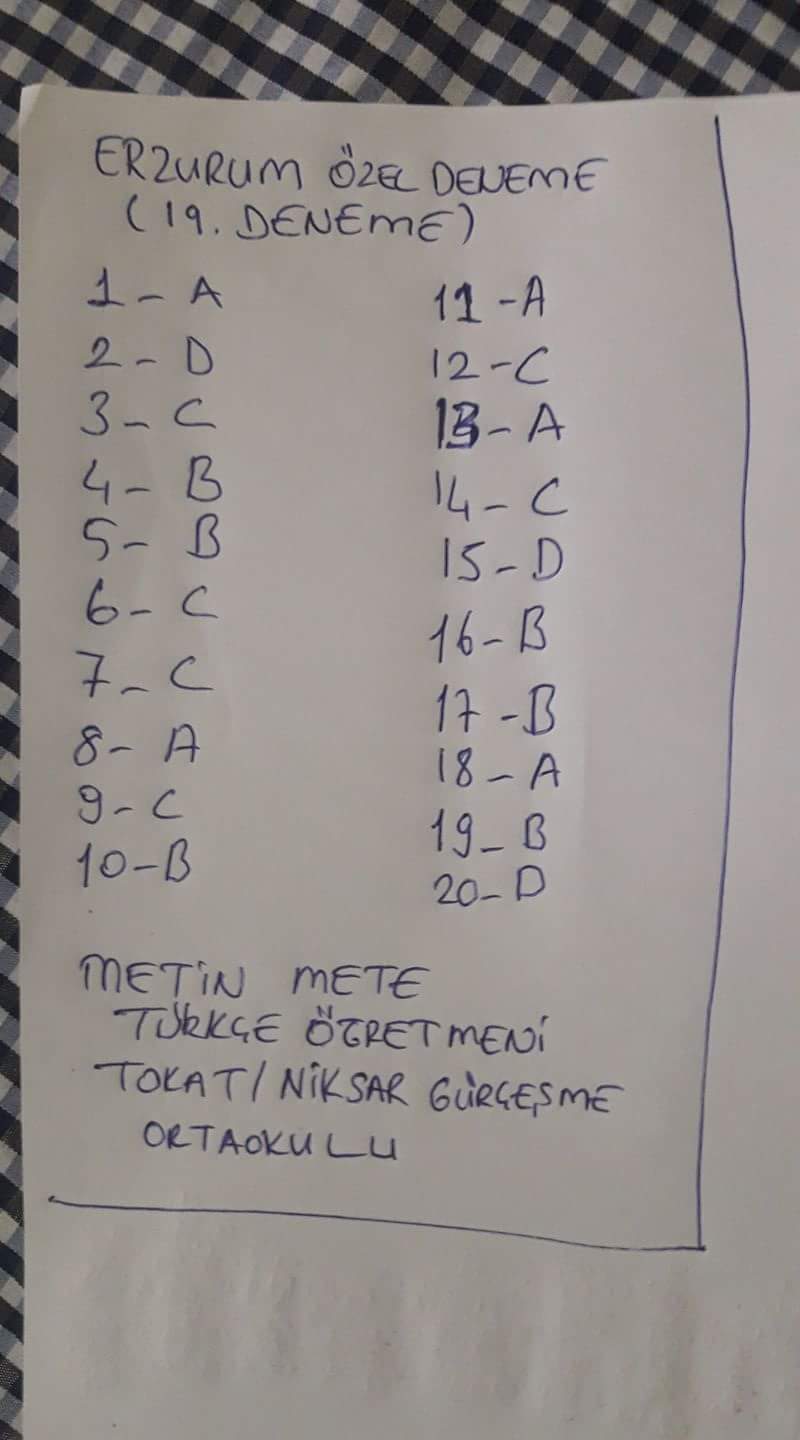 ERZURUM ÖZEL DENEME
(19. DENEME)
1- A
2- D
3- C
4- B
5- B
6- C
7- C
8- A
9- C
10-B
11-A
12-C
13-A
14-C
15-D
16-B
17-B
18-A
19-B
20-D
METİN METE
TÜRKÇE ÖĞRETMENİ
TOKAT/NİKSAR GÜRÇEŞME
ORTAOKULU